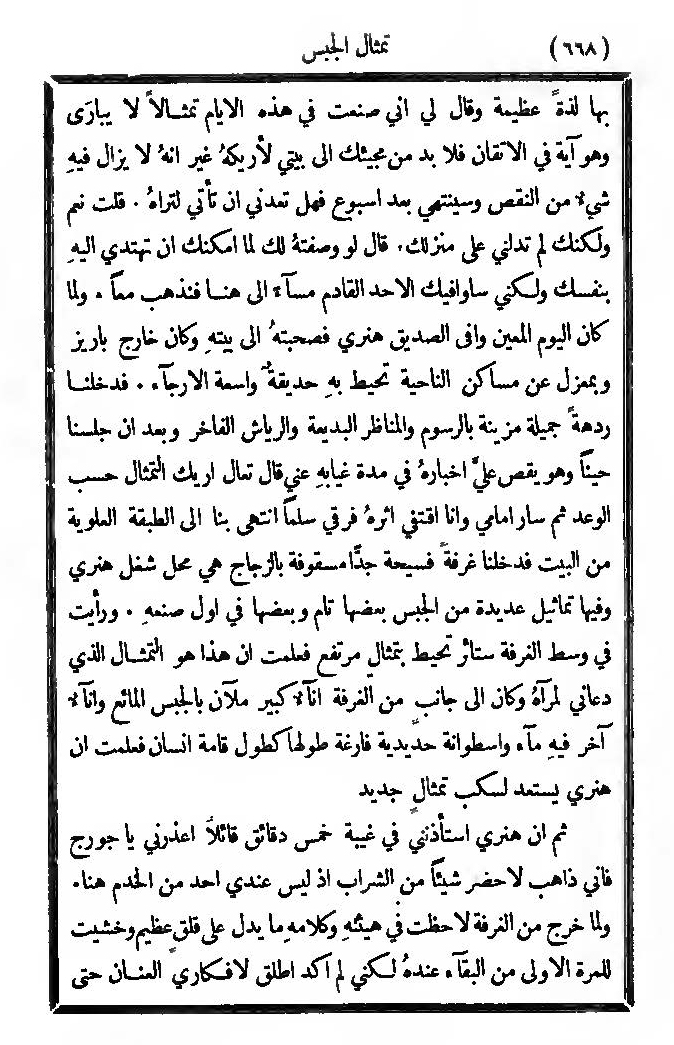 (٦٦٨) تمثال الجبس
بها لذةً عظيمة وقال لي اني صنعت في هذه الايام تمثالاً لا يبارَى
وهو آية في الاتقان فلا بد من مجيئك الى بيتي لأريكهُ غير انهُ لا يزال فيهِ
شيء من النقص وسينتهي بعد اسبوع فهل تعدني ان تأتي لتراهُ . قلت نعم
ولكنك لم تدلني على منزلك . قال لو وصفتهُ لك لما امكنك ان تهتدي اليهِ
بنفسك ولكني ساوافيك الاحد القادم مسآءً الى هنا فنذهب معاً . ولما
كان اليوم المعين وافى الصديق هنري فصحبتهُ الى بيتهِ وكان خارج باريز
وبمعزل عن مساكن الناحية تحيط بهِ حديقةٌ واسعة الارجآء . فدخلنا
ردهةً جميلة مزينة بالرسوم والمناظر البديعة والرياش الفاخر وبعد ان جلسنا
حيناً وهو يقص عليَّ اخبارهُ في مدة غيابهِ عني قال تعال اريك التمثال حسب
الوعد ثم سار امامي وانا اقتفي اثرهُ فرقي سلماً انتهى بنا الى الطبقة العلوية
من البيت فدخلنا غرفةً فسيحة جدًّا مسقوفة بالزجاج هي محل شغل هنري
وفيها تماثيل عديدة من الجبس بعضها تام وبعضها في اول صنعهِ . ورأيت
في وسط الغرفة ستائر تحيط بتمثالٍ مرتفع فعلمت ان هذا هو التمثال الذي
دعاني لمرآهُ وكان الى جانبٍ من الغرفة انآءٌ كبير ملآن بالجبس المائع وانآءٌ
آخر فيهِ مآء واسطوانة حديدية فارغة طولها كطول قامة انسان فعلمت ان
هنري يستعد لسكب تمثالٍ جديد
ثم ان هنري استأذنني في غيبة خمس دقائق قائلاً اعذرني يا جورج
فاني ذاهب لاحضر شيئاً من الشراب اذ ليس عندي احد من الخدم هنا .
ولما خرج من الغرفة لاحظت في هيئتهِ وكلامهِ ما يدل على قلقٍ عظيم وخشيت
للمرة الاولى من البقآء عندهُ لكني لم اكد اطلق لافكاري العنان حتى